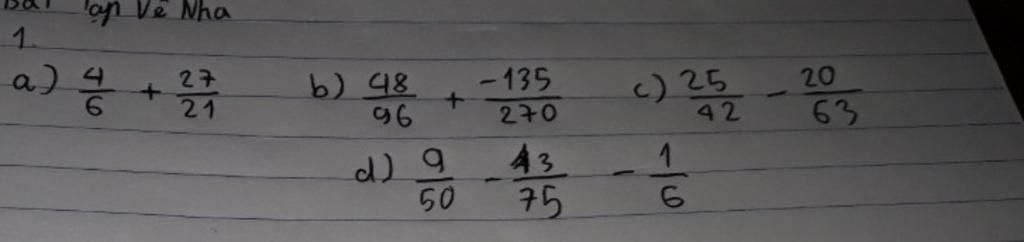 Bài Tập Về Nha
1.
a) 4/6 + 27/21 b) 48/96 + -135/270 c) 25/42 - 20/63
d) 9/50 - 13/75 - 1/6